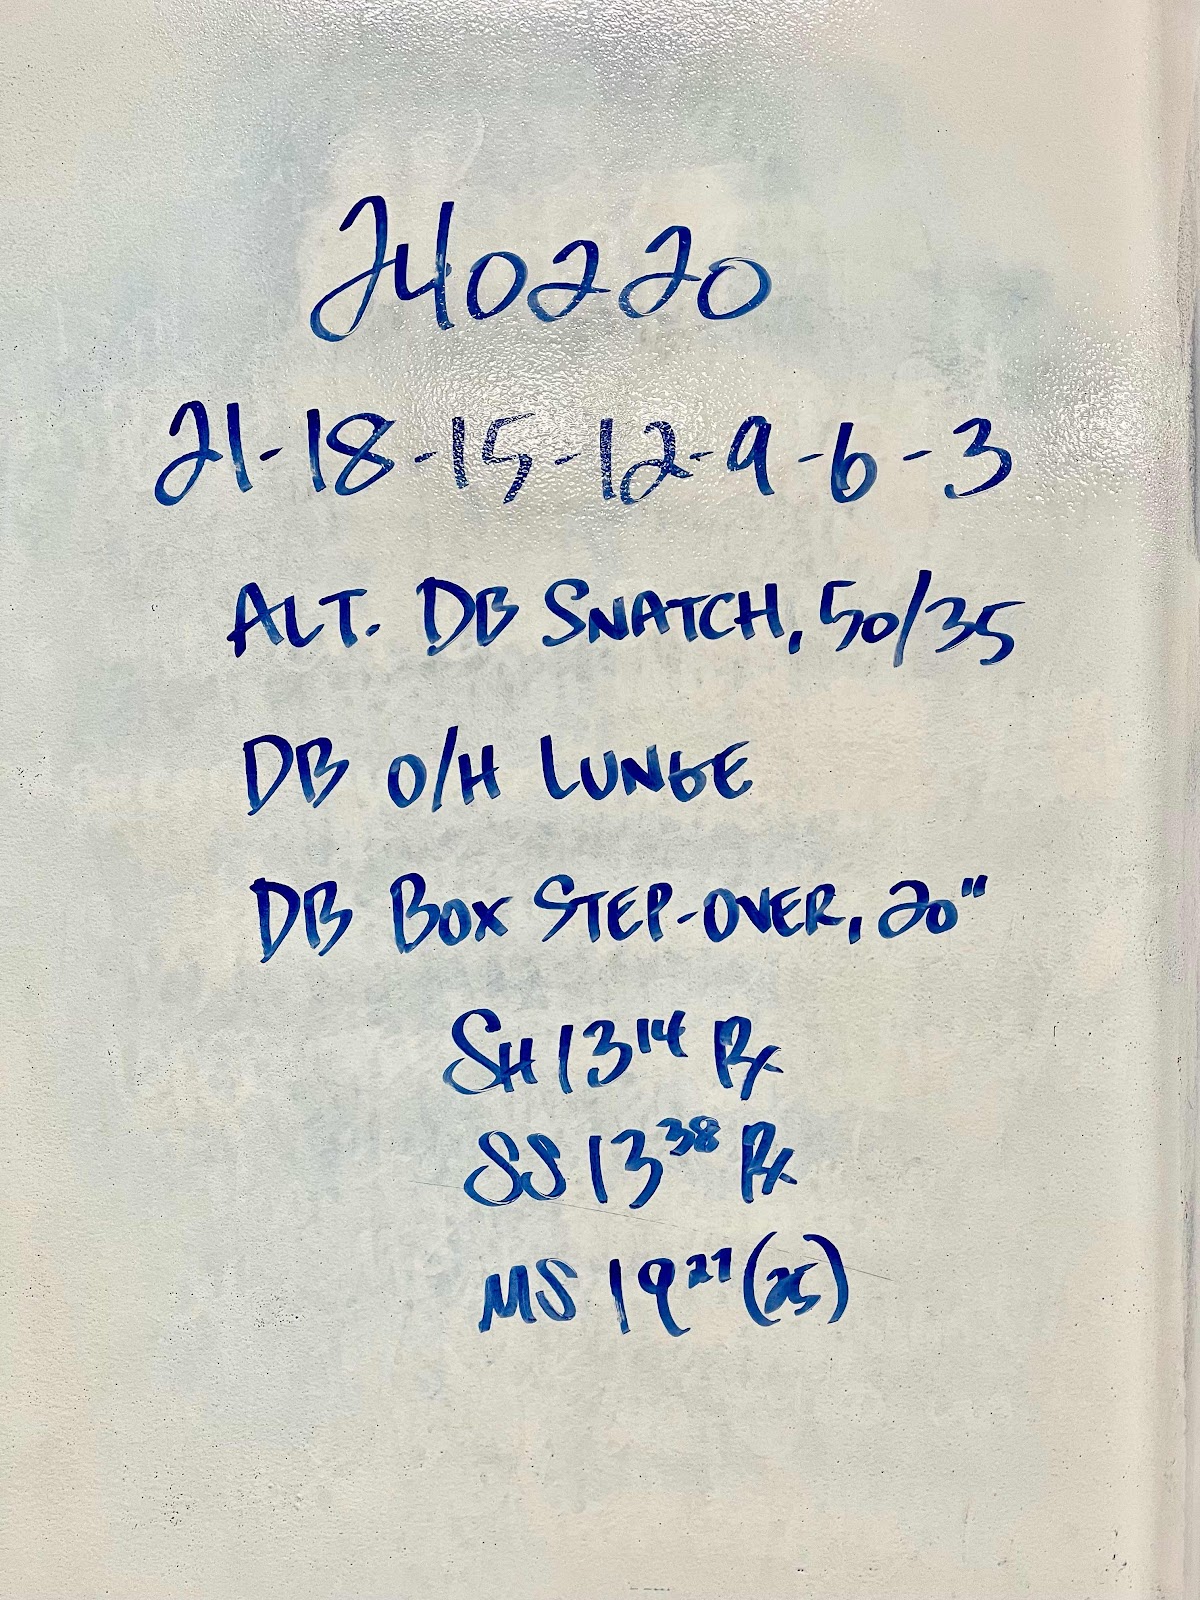 240220
21-18-15-12-9-6-3
ALT. DB SNATCH, 50/35
DB O/H LUNGE
DB BOX STEP-OVER, 20"
SH 13¹⁴ Rx
SS 13³⁸ Rx
MS 19²⁷ (25)